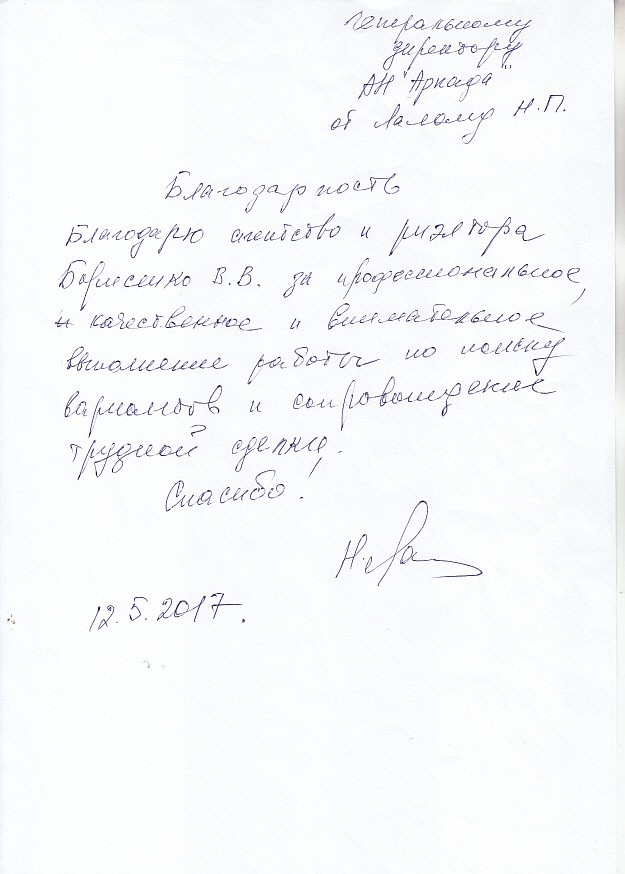 Генеральному
директору
АН "Аркада"
от Н.П.
Благодарность
Благодарю агентство и риэлтора
Борисенко В.В. за профессиональное,
и качественное и внимательное
выполнение работы по поиску
вариантов и сопровождение
трудной сделки.
Спасибо!
12.5.2017.